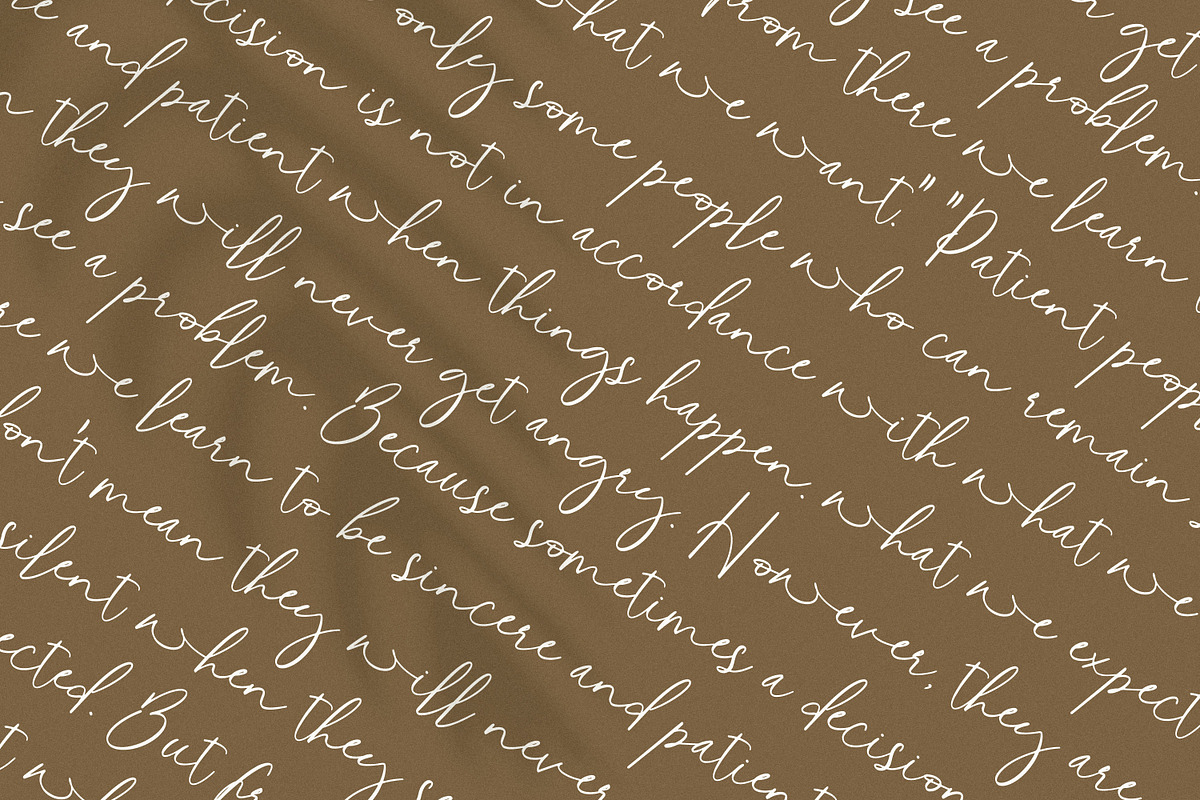 get
see a problem.
from there we learn
what we want." "Patient peop
only some people who can remain s
cision is not in accordance with what we
e and patient when things happen. what we expect
n they will never get angry. However, they are
see a problem. Because sometimes a decision
re we learn to be sincere and patient
don't mean they will never
silent when they se
ected. But fr